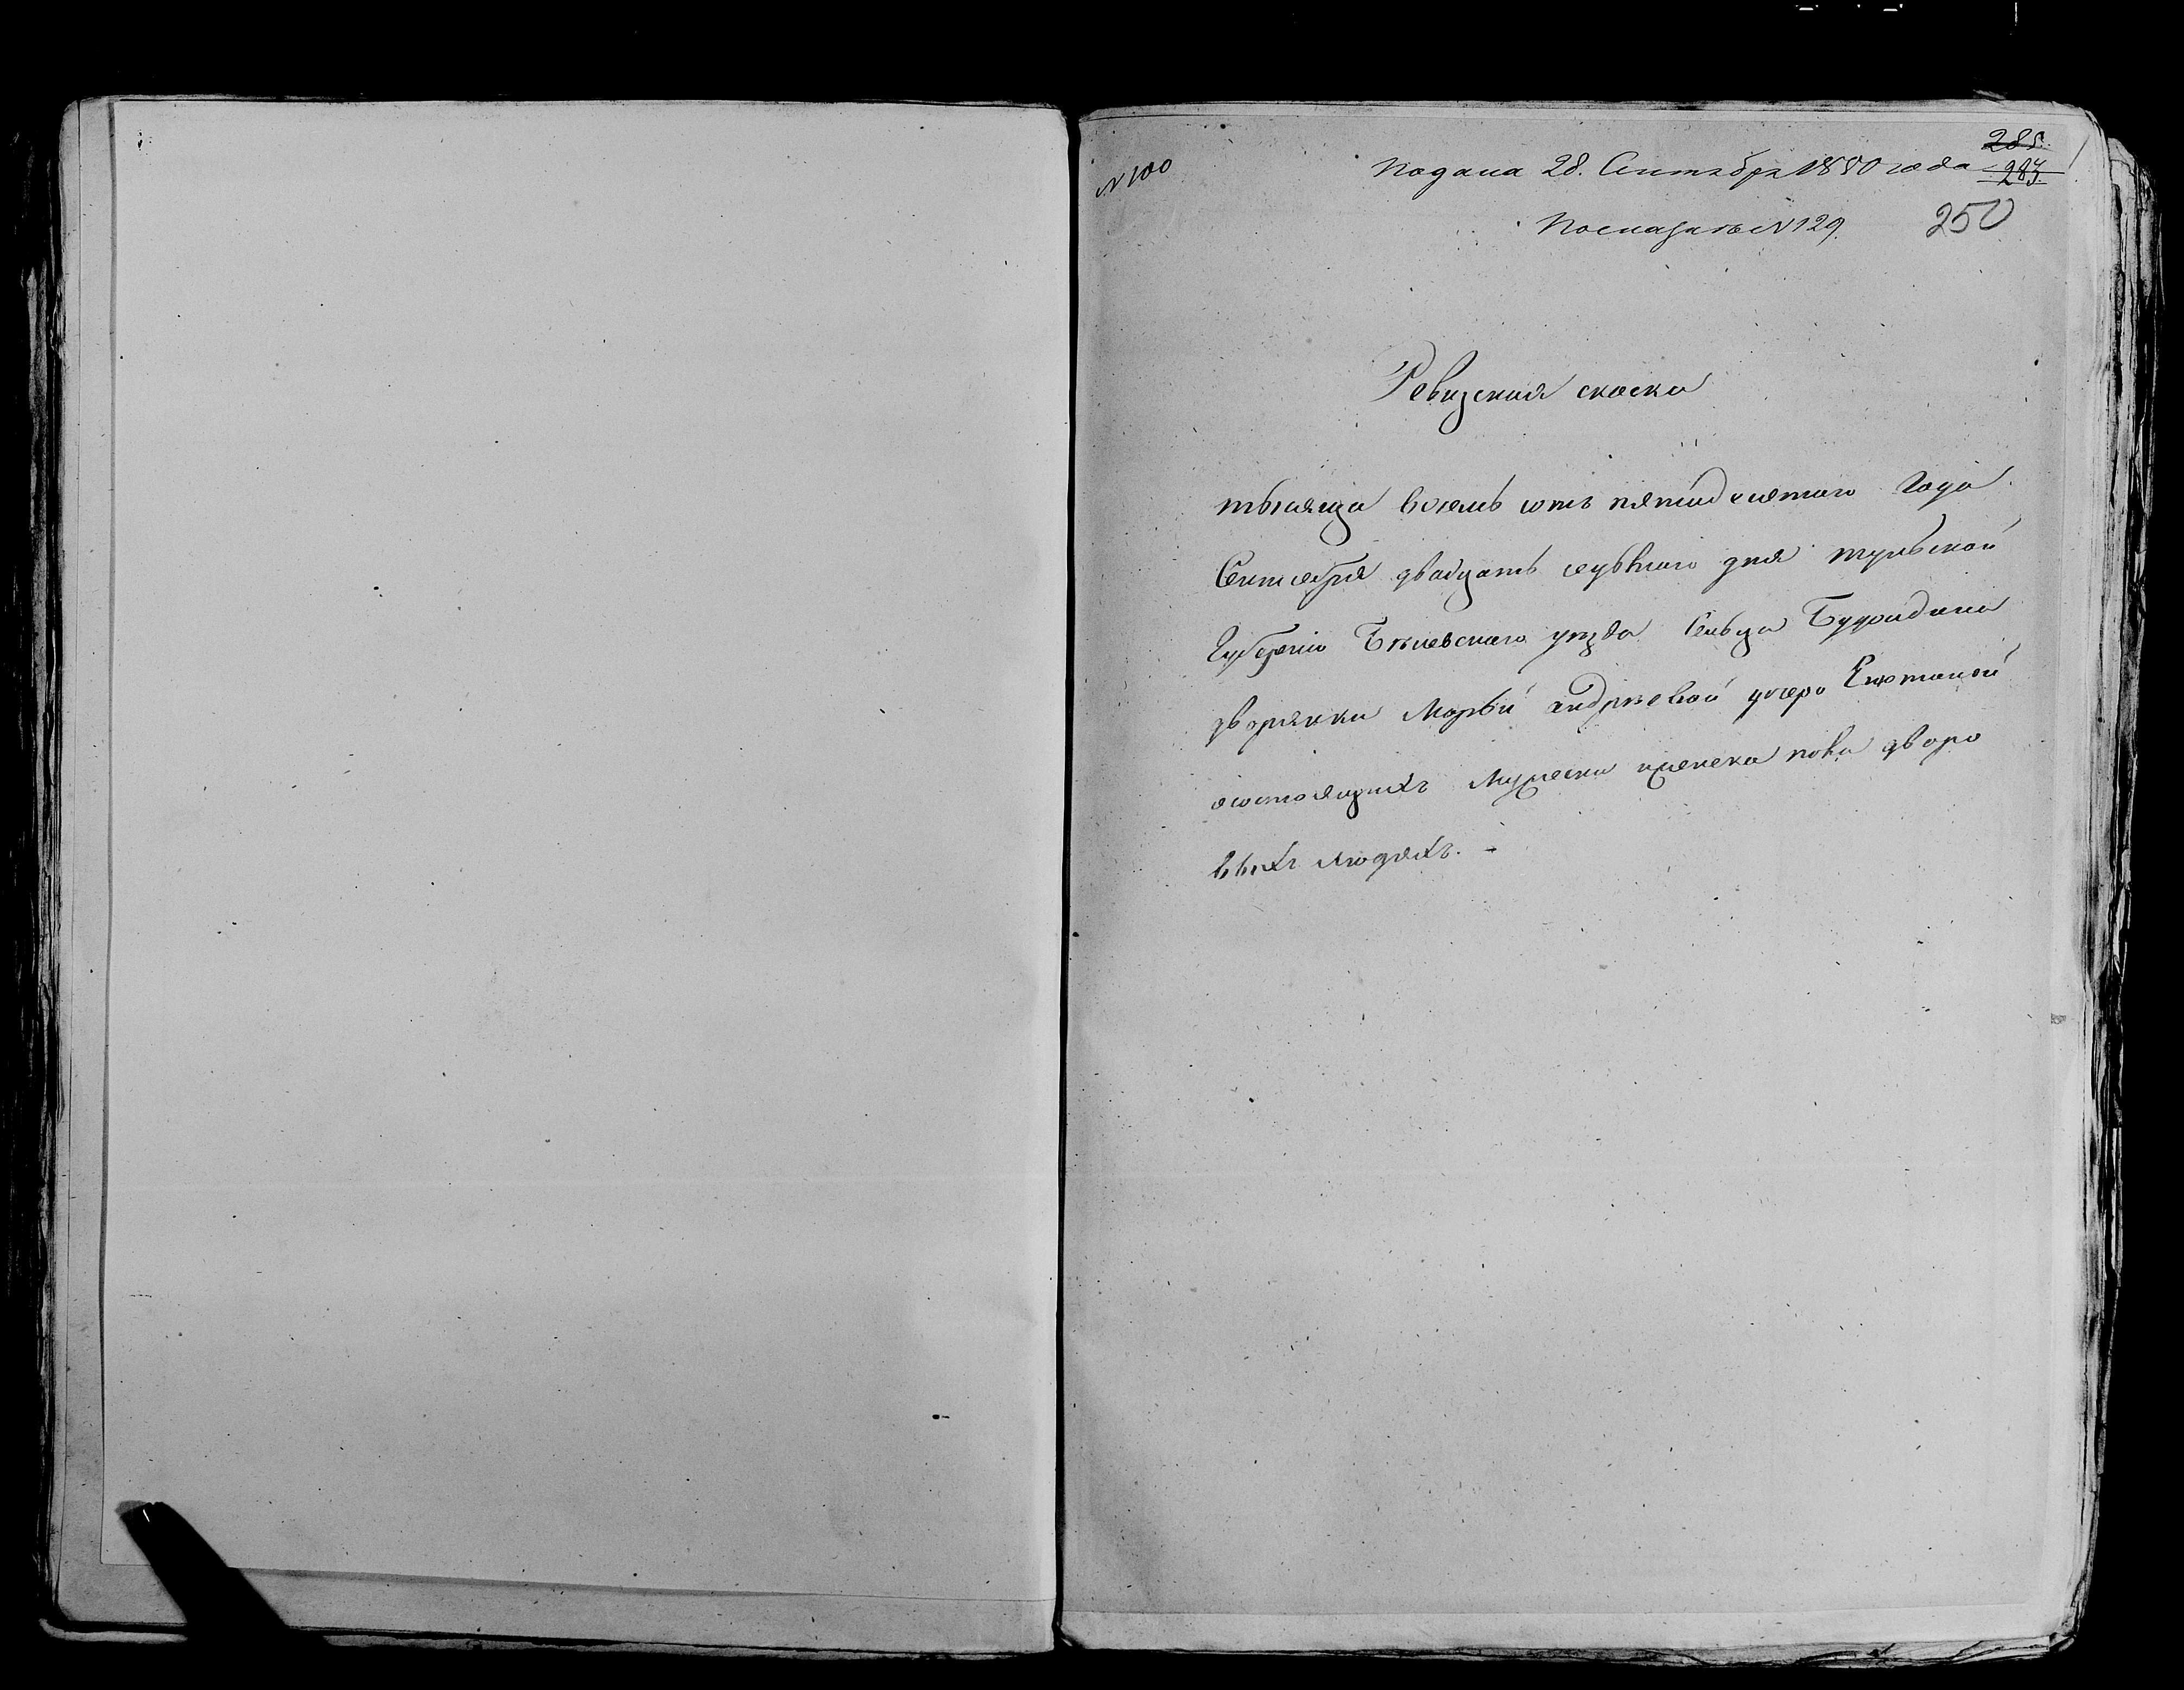 N 100
Подана 28. Сентября 1850 года
285.
283.
По сказкѣ N 129.
250
Ревизская скаска
тысяща восемь сотъ пятидесятаго Года
Сентября двадцать седьмаго дня тульской
Губерніи Бѣлевскаго уезда Сельца
дворянки Марьи андрѣевой дочери
осостоящихъ Мужеска иженска пола дворо
выхъ людяхъ. -